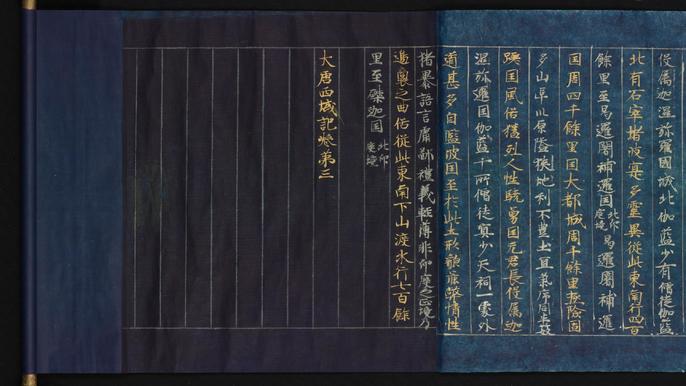 役属迦濕弥羅國城北伽藍少有僧徒伽藍
北有石窣堵波寔多靈異從此東南行四百
餘里至曷邏闍補邏国北印度境曷邏闍補邏
国周四千餘里国大都城周十餘里極險固
多山阜川原隘狹地利不豊土宜氣序同半笯
蹉国風俗猛烈人性驍勇国无君長役属迦
濕弥邏国伽藍十所僧徒寡少天祠一處外
道甚多自藍波国至於此土形皃麁弊情性
猥暴語言庸鄙禮義輕薄非印度之正境乃
邊裔之曲俗從此東南下山渡水行七百餘
里至磔迦国北印度境
大唐西域記卷第三